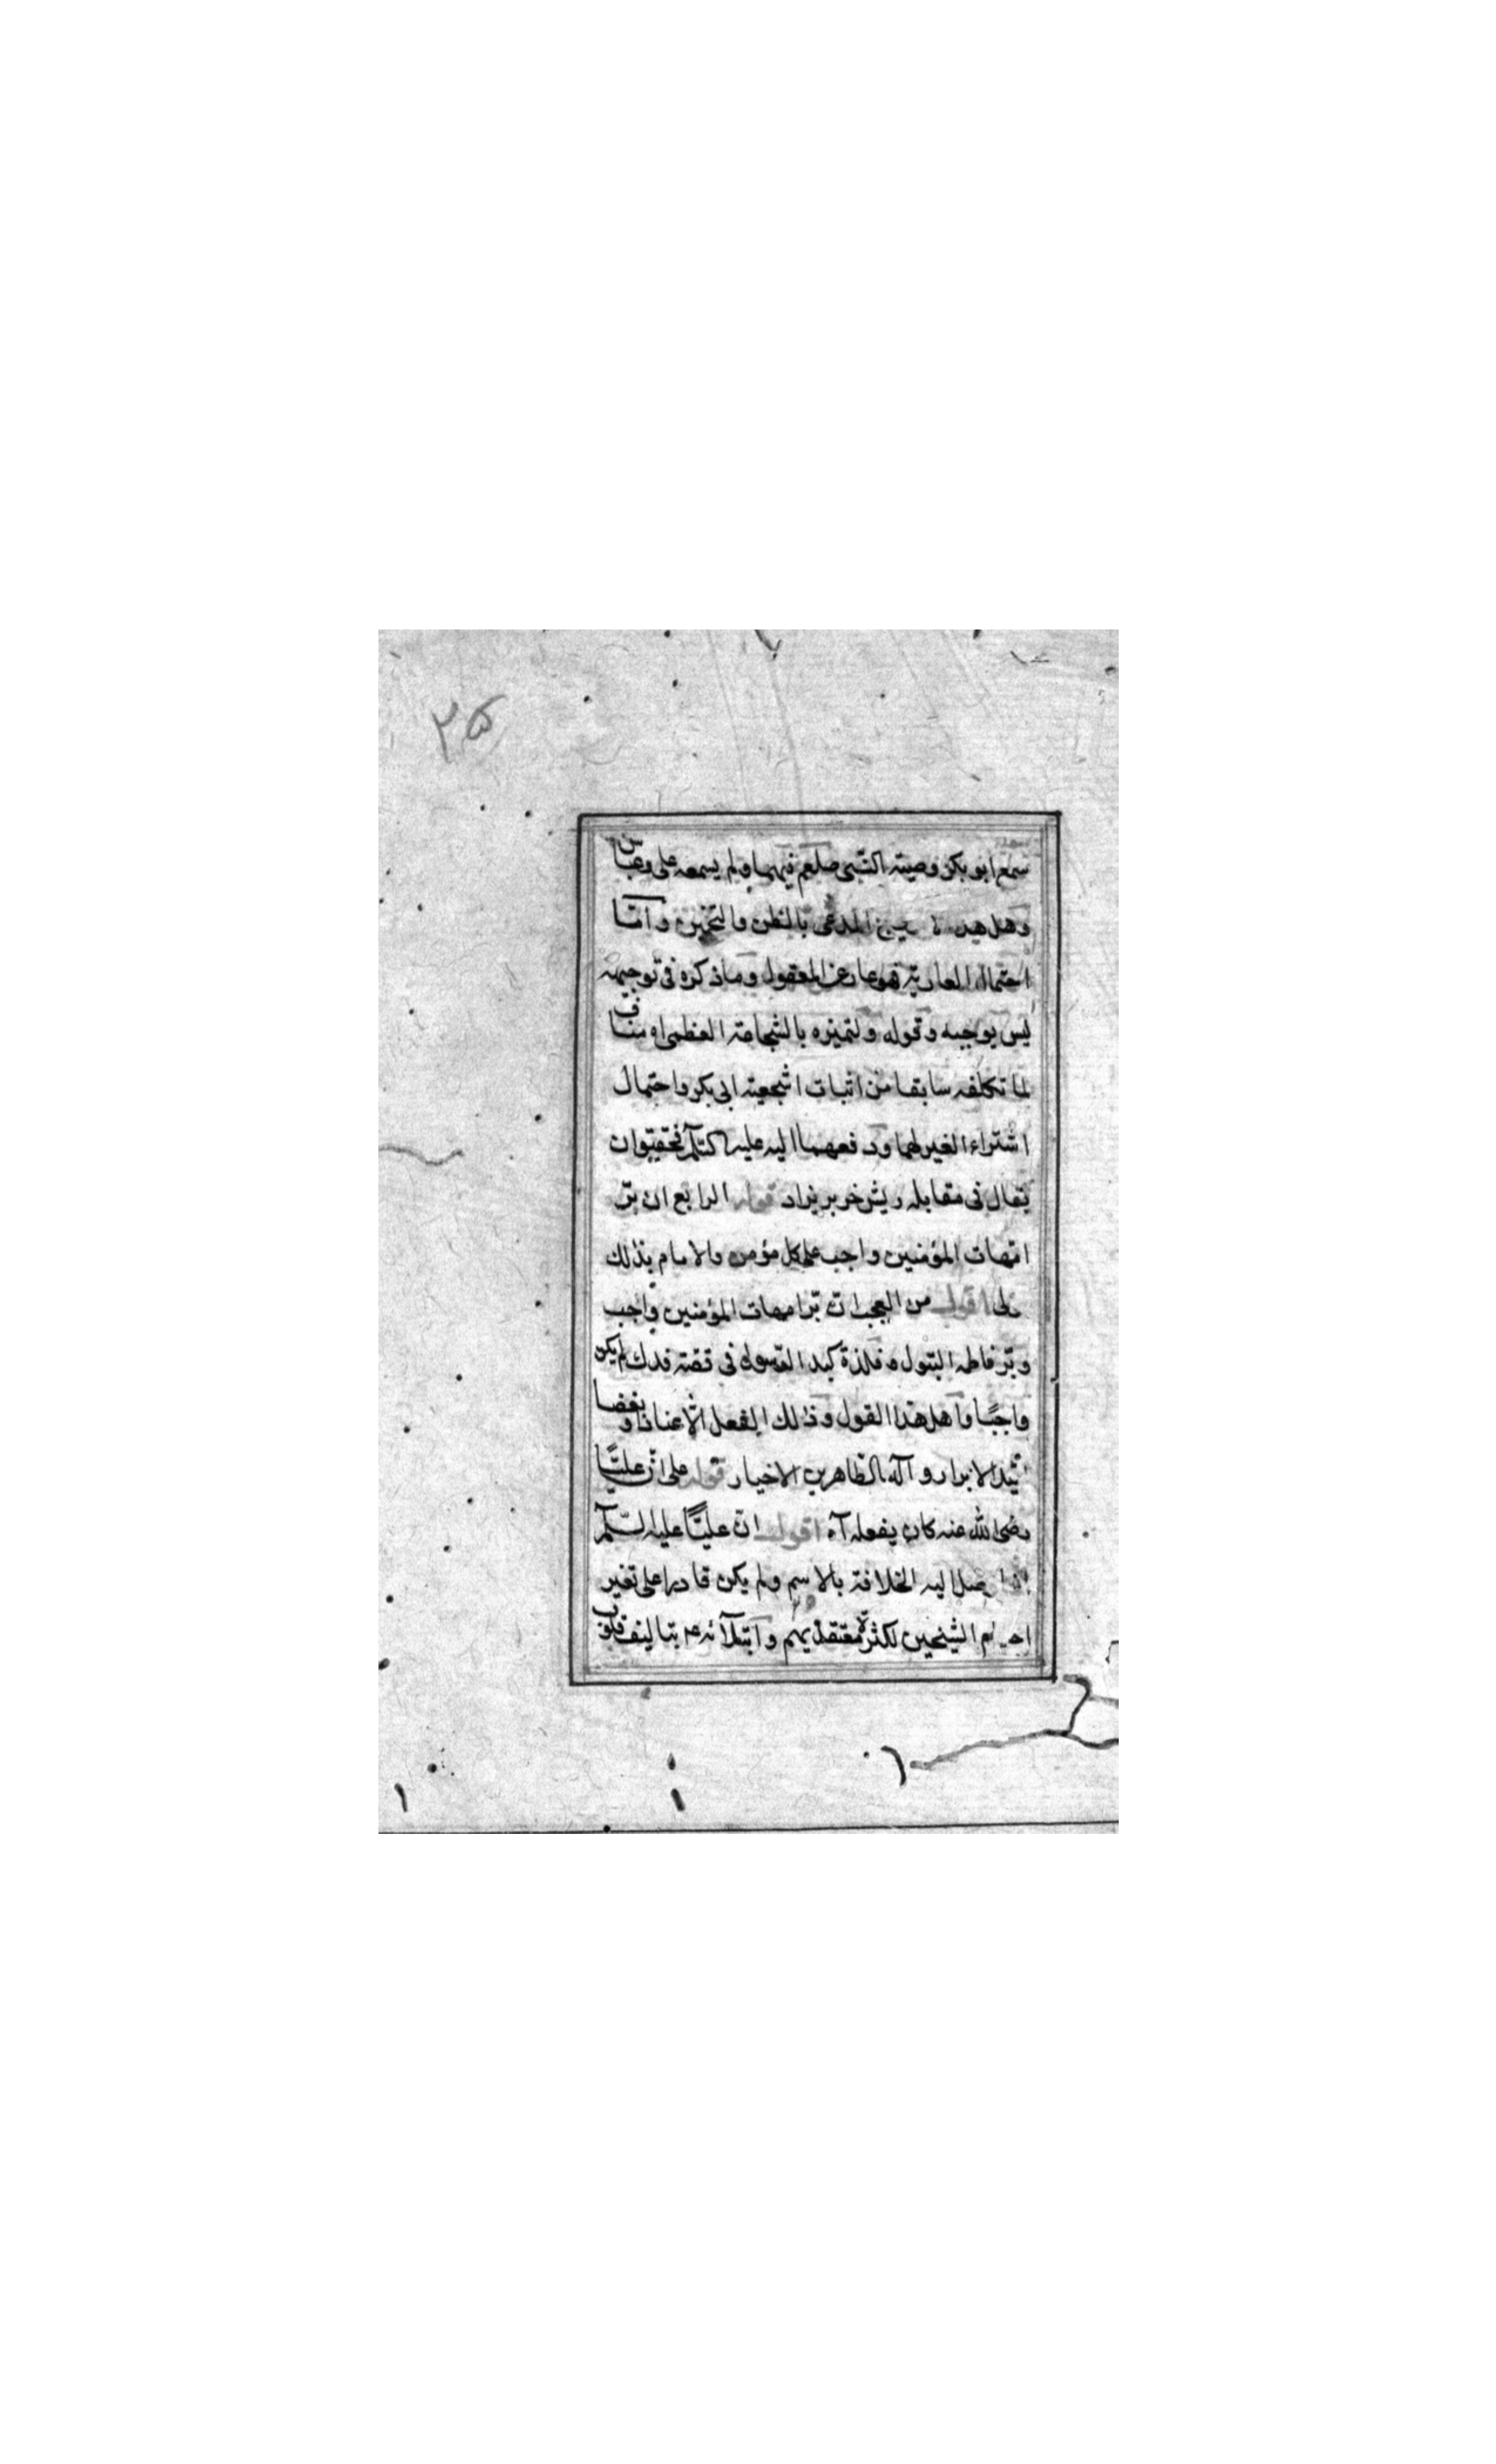 ۲۵
سمع ابو بکر وصیته النّبی صلعم فیهما ولم یسمعه علی وعباس
وهل هذه الا المدعی بالظن والتخمین وامّا
احتمال العاریّه فهو عار عن المعقول وماذکره فی توجیهه
لیس بوجیه وقوله ولتمیزه بالشجاعة العظمی اه مناف
لما تکلفه سابقا من اثبات اشجعیته ابی بکر واحتمال
اشتراء الغیر لهما ودفعهما الیه علیه السّلم فحقیق بان
یقال فی مقابله ریش خر بریزاد قوله الرابع ان برّ
امّهات المؤمنین واجب علی کل مؤمن والامام بذلک
اولی اقول من العجب ان برّ امهات المؤمنین واجب
وبرّ فاطمه البتول وفلذة کبد الرّسول فی قضّته فدک لم یکن
واجبًا وما هل هذا القول وذلک الفعل الّا عنادا وبغضا
لسید الابرار وآله الطّاهرین الاخیار قوله علی انّ علیّاً
رضی الله عنه کان یفعله آه اقول انّ علیّاً علیه السّلم
وصل الیه الخلافة بالاسم ولم یکن قادرا علی تغیر
احکام الشیخین لکثرة معتقدیهم وابتلائه ع بتالیف قلوب